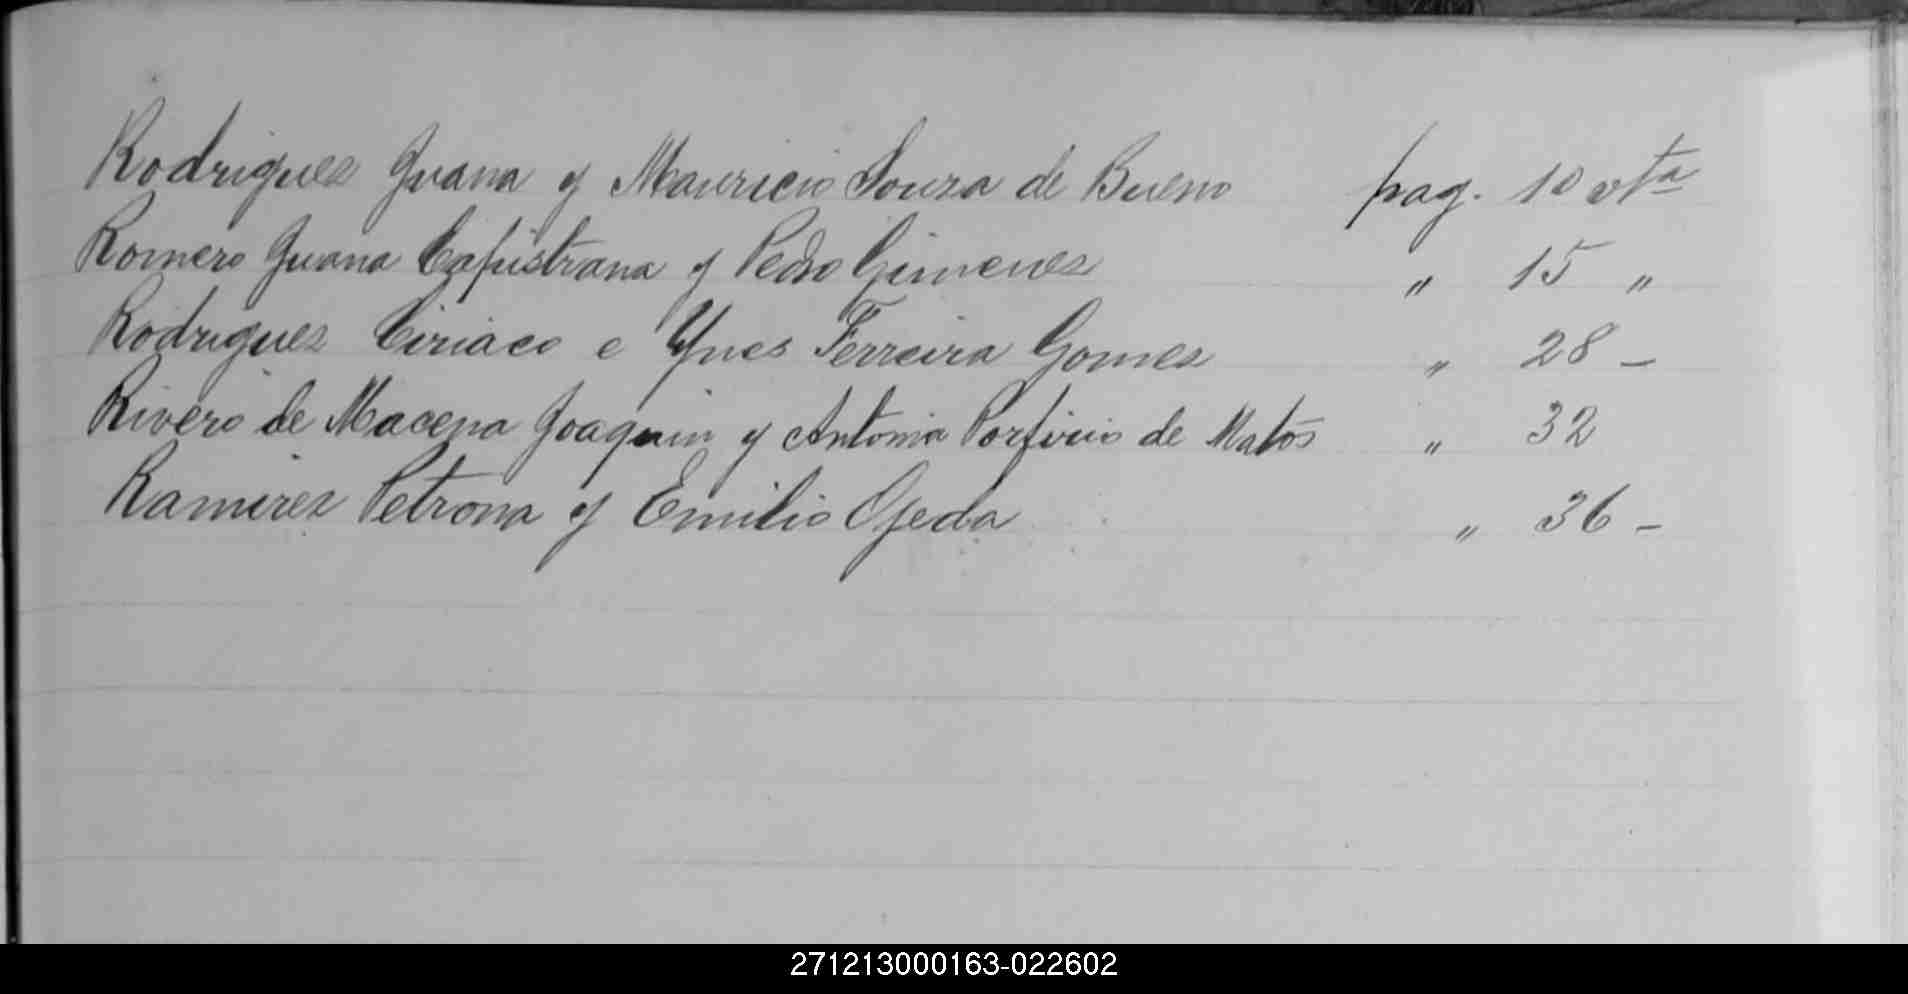 Rodriguez Juana y Mauricio Souza de Bueno pag. 10 vta
Romero Juana Capistrana y Pedro Gimenez " 15 "
Rodriguez Ciriaco e Ynes Ferreira Gomez " 28 -
Rivero de Macena Joaquin y Antonia Porfirio de Matos " 32
Ramirez Petrona y Emilio Ojeda " 36 -
271213000163-022602